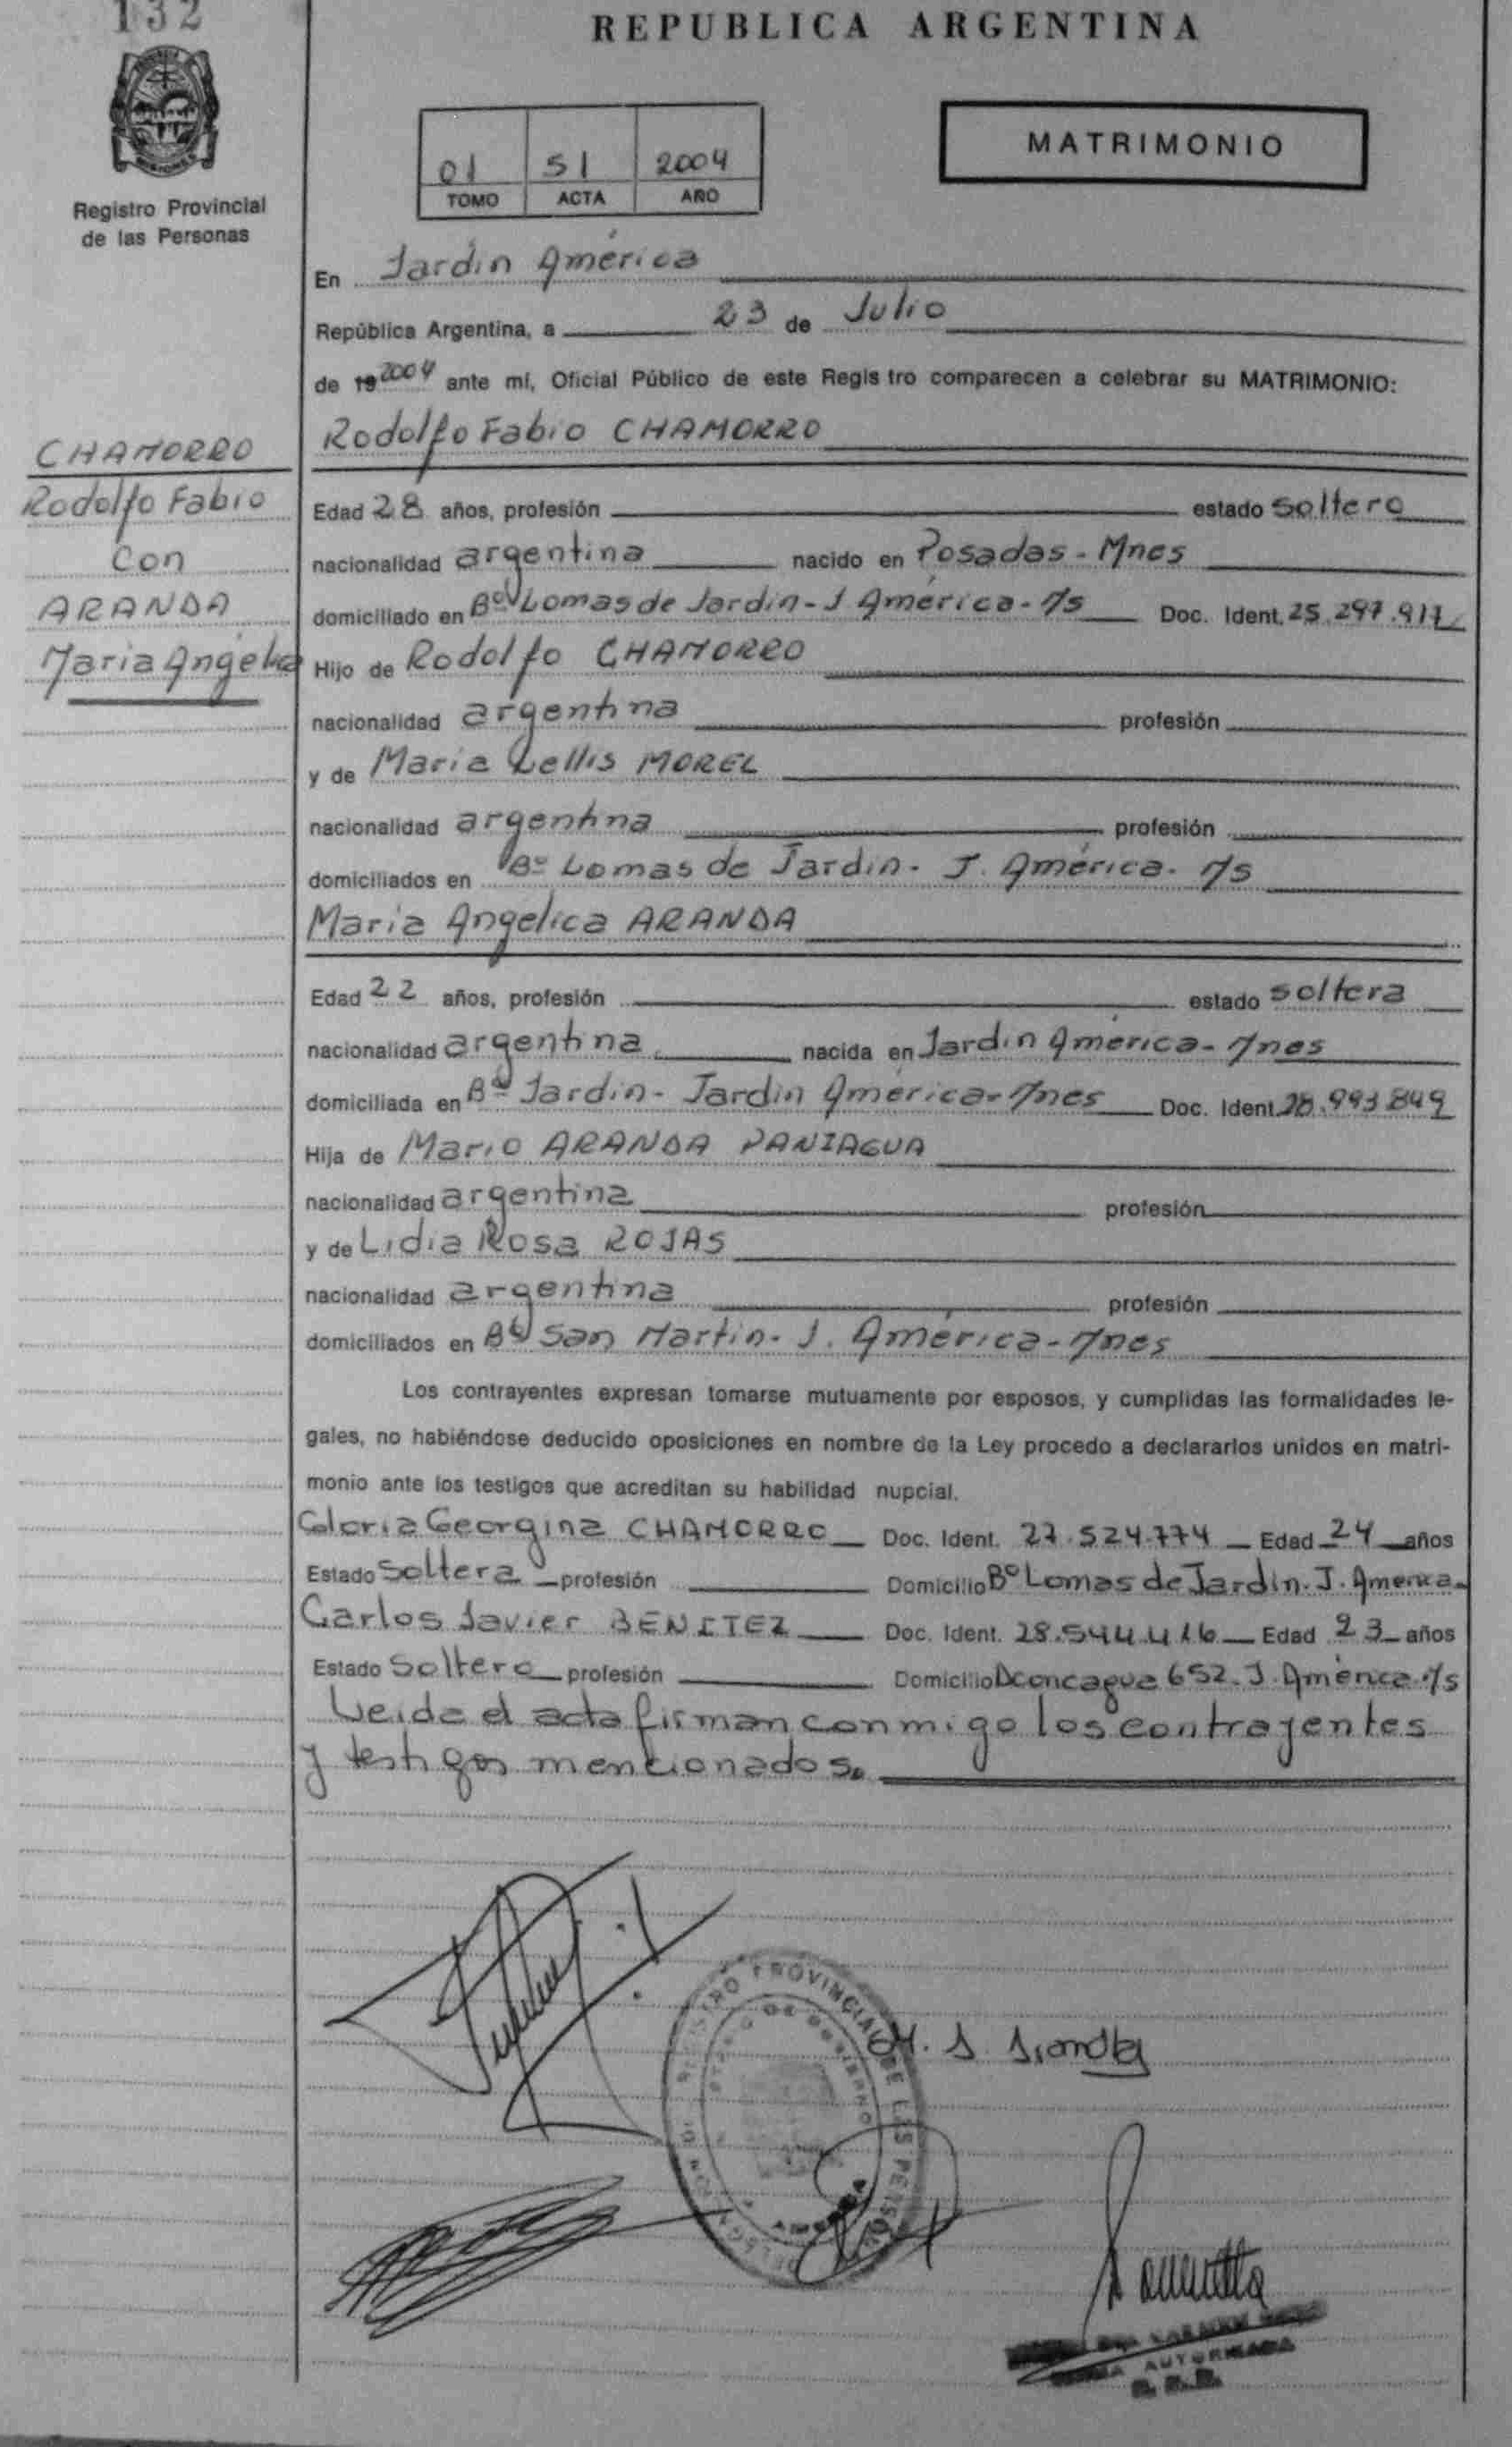 132
REPUBLICA ARGENTINA
Registro Provincial
de las Personas
01 51 2004
TOMO ACTA AÑO
MATRIMONIO
En Jardín América
República Argentina, a 23 de Julio
de 19 2004 ante mí, Oficial Público de este Registro comparecen a celebrar su MATRIMONIO:
CHAMORRO
Rodolfo Fabio
Con
ARANDA
Maria Angelica
Rodolfo Fabio CHAMORRO
Edad 28 años, profesión estado soltero
nacionalidad argentina nacido en Posadas - Mnes
domiciliado en Bº Lomas de Jardin - J América - M/s Doc. Ident. 25.297.917
Hijo de Rodolfo CHAMORRO
nacionalidad argentina profesión
y de Maria Lellis MOREL
nacionalidad argentina profesión
domiciliados en Bº Lomas de Jardin - J. América - M/s
Maria Angelica ARANDA
Edad 22 años, profesión estado soltera
nacionalidad argentina nacida en Jardin América - Mnes
domiciliada en Bº Jardin - Jardin América - Mnes Doc. Ident. 28.993.849
Hija de Mario ARANDA PANIAGUA
nacionalidad argentina profesión
y de Lidia Rosa ROJAS
nacionalidad argentina profesión
domiciliados en Bº San Martin - J. América - Mnes
Los contrayentes expresan tomarse mutuamente por esposos, y cumplidas las formalidades le-
gales, no habiéndose deducido oposiciones en nombre de la Ley procedo a declararlos unidos en matri-
monio ante los testigos que acreditan su habilidad nupcial.
Gloria Georgina CHAMORRO Doc. Ident. 27.524.774 Edad 24 años
Estado Soltera profesión Domicilio Bº Lomas de Jardin. J. America
Carlos Javier BENITEZ Doc. Ident. 28.544.416 Edad 23 años
Estado Soltero profesión Domicilio Aconcagua 652. J. América M/s
Leida el acta firman conmigo los contrayentes
y testigos mencionados.
REGISTRO PROVINCIAL DE LAS PERSONAS
AUTORIZADA